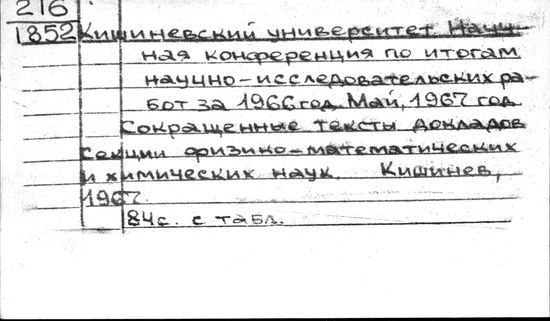 216
1852 Кишиневский университет. Науч-
ная конференция по итогам
научно-исследовательских ра-
бот за 1966 год. Май, 1967 год.
Сокращенные тексты докладов
секции физико-математических
и химических наук. Кишинев,
1967.
84с. с табл.